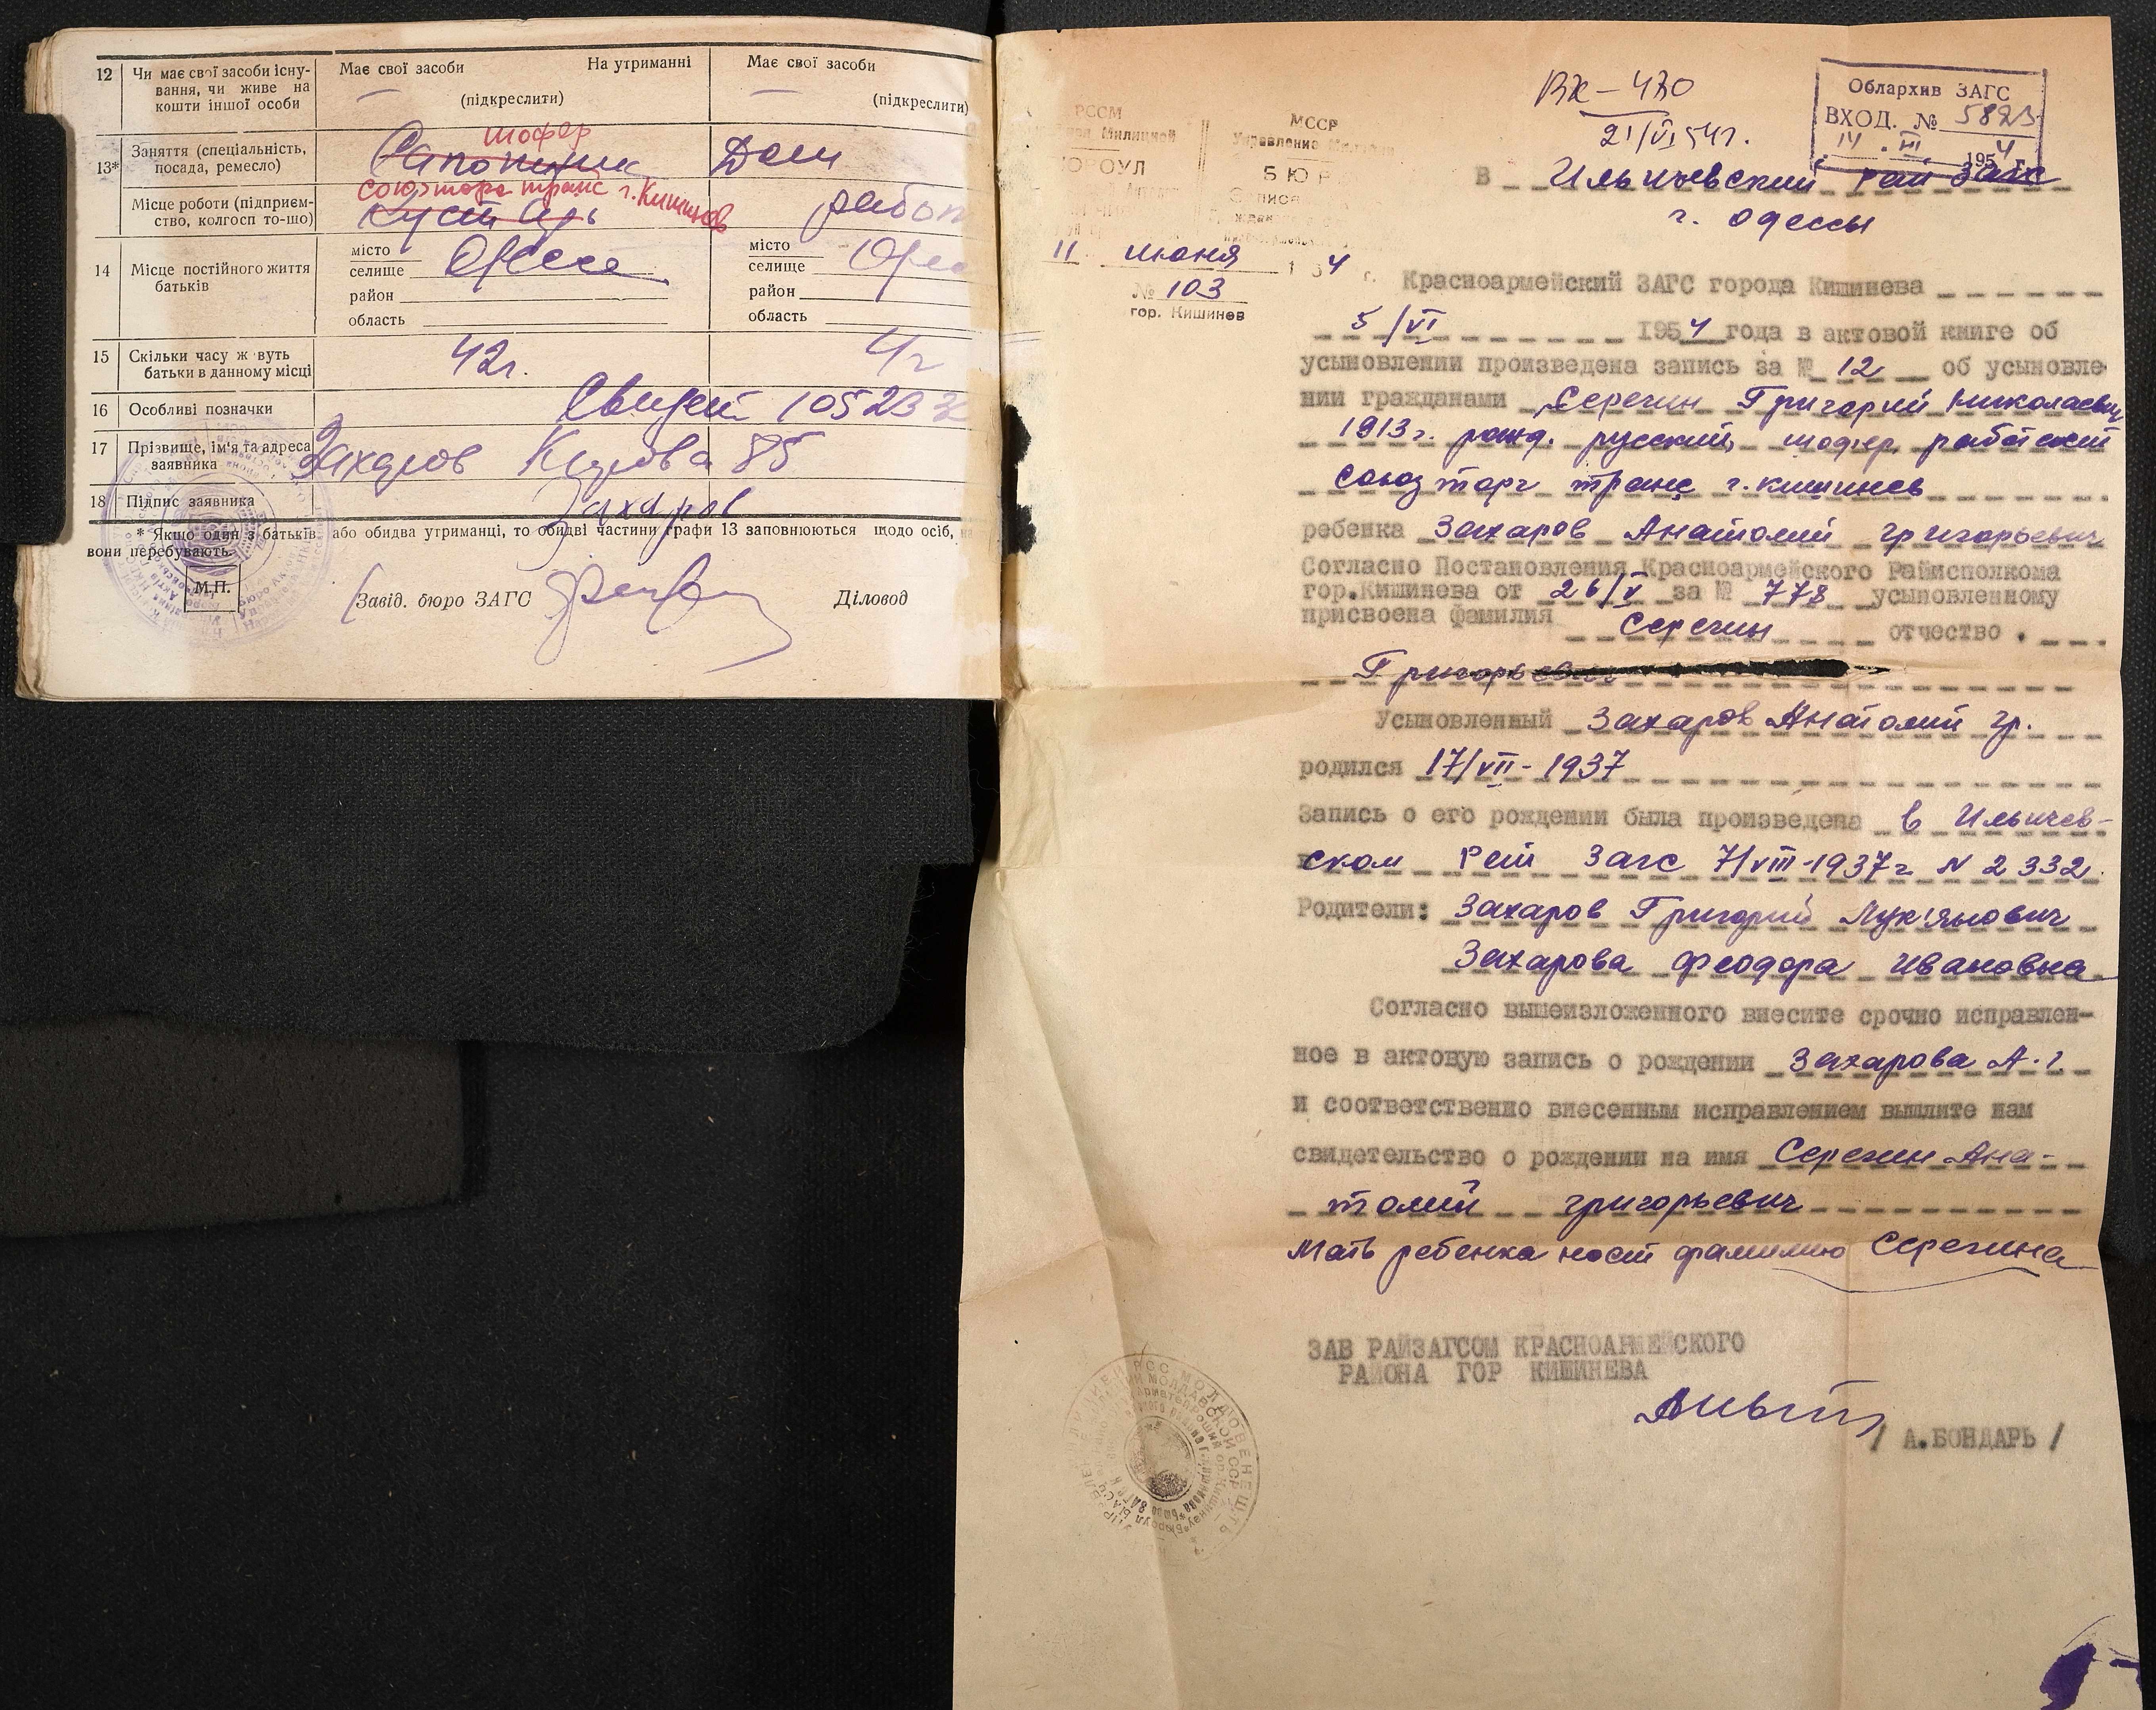 12 Чи має свої засоби існу-
вання, чи живе на
кошти іншої особи
Має свої засоби На утриманні
(підкреслити)
Має свої засоби
(підкреслити)
13* Заняття (спеціальність,
посада, ремесло)
шофер
Сапожник
Дом
Місце роботи (підприєм-
ство, колгосп то-що)
союзторг транс г. Кишинев
Кустарь
работ
14 Місце постійного життя
батьків
місто
селище Одесса
район
область
місто
селище
район
область
15 Скільки часу ж вуть
батьки в данному місці
42г.
16 Особливі позначки
105233
17 Прізвище, ім'я та адреса
заявника
Захаров 85
18 Підпис заявника
Захаров
* Якщо один з батьків або обидва утриманці, то обидві частини графи 13 заповнюються щодо осіб,
вони перебувають.
М.П.
Завід. бюро ЗАГС
Діловод
ВХ - 470
21/VI 54г.
Облархив ЗАГС
ВХОД. № 5823
1954 г.
РССМ
МССР
Управление
БЮР
11 июня 1 54 г.
№ 103
гор. Кишинев
В Ильичевский рай загс
г. Одессы
Красноармейский ЗАГС города Кишинева
5/VI 1954 года в актовой книге об
усыновлении произведена запись за № 12 об усыновле-
нии гражданами Серегин Григорий Николаевич
1913г. рожд. русский, шофер,
союзторг транс г. кишинев
ребенка Захаров Анатолий григорьевич
Согласно Постановления Красноармейского Райисполкома
гор.Кишинева от 26/V за № 778 усыновленному
присвоена фамилия Серегин отчество
Григорьевич
Усыновленный Захаров Анатолий гр.
родился 17/VII - 1937
Запись о его рождении была произведена в Ильичев-
ском Рай Загс 7/VIII-1937г N 2332.
Родители: Захаров Григорий Лук'янович
Захарова Феодора Ивановна
Согласно вышеизложенного внесите срочно исправлен-
ное в актовую запись о рождении Захарова А.г.
и соответственно внесенным исправлением вышлите нам
свидетельство о рождении на имя Серегин Ана-
толий григорьевич
Мать ребенка носит фамилию Серегина
ЗАВ РАЙЗАГСОМ КРАСНОАРМЕЙСКОГО
РАЙОНА ГОР КИШИНЕВА
/ А.БОНДАРЬ /